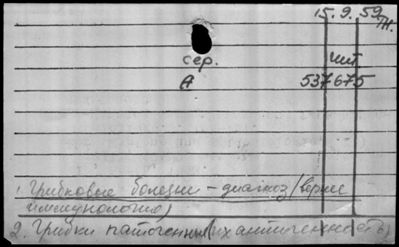 15.9.59
сер. инт
А 537675
1. Грибковые болезни – диагноз (
иммунология)
2. Грибки патогенны (их антигенность)